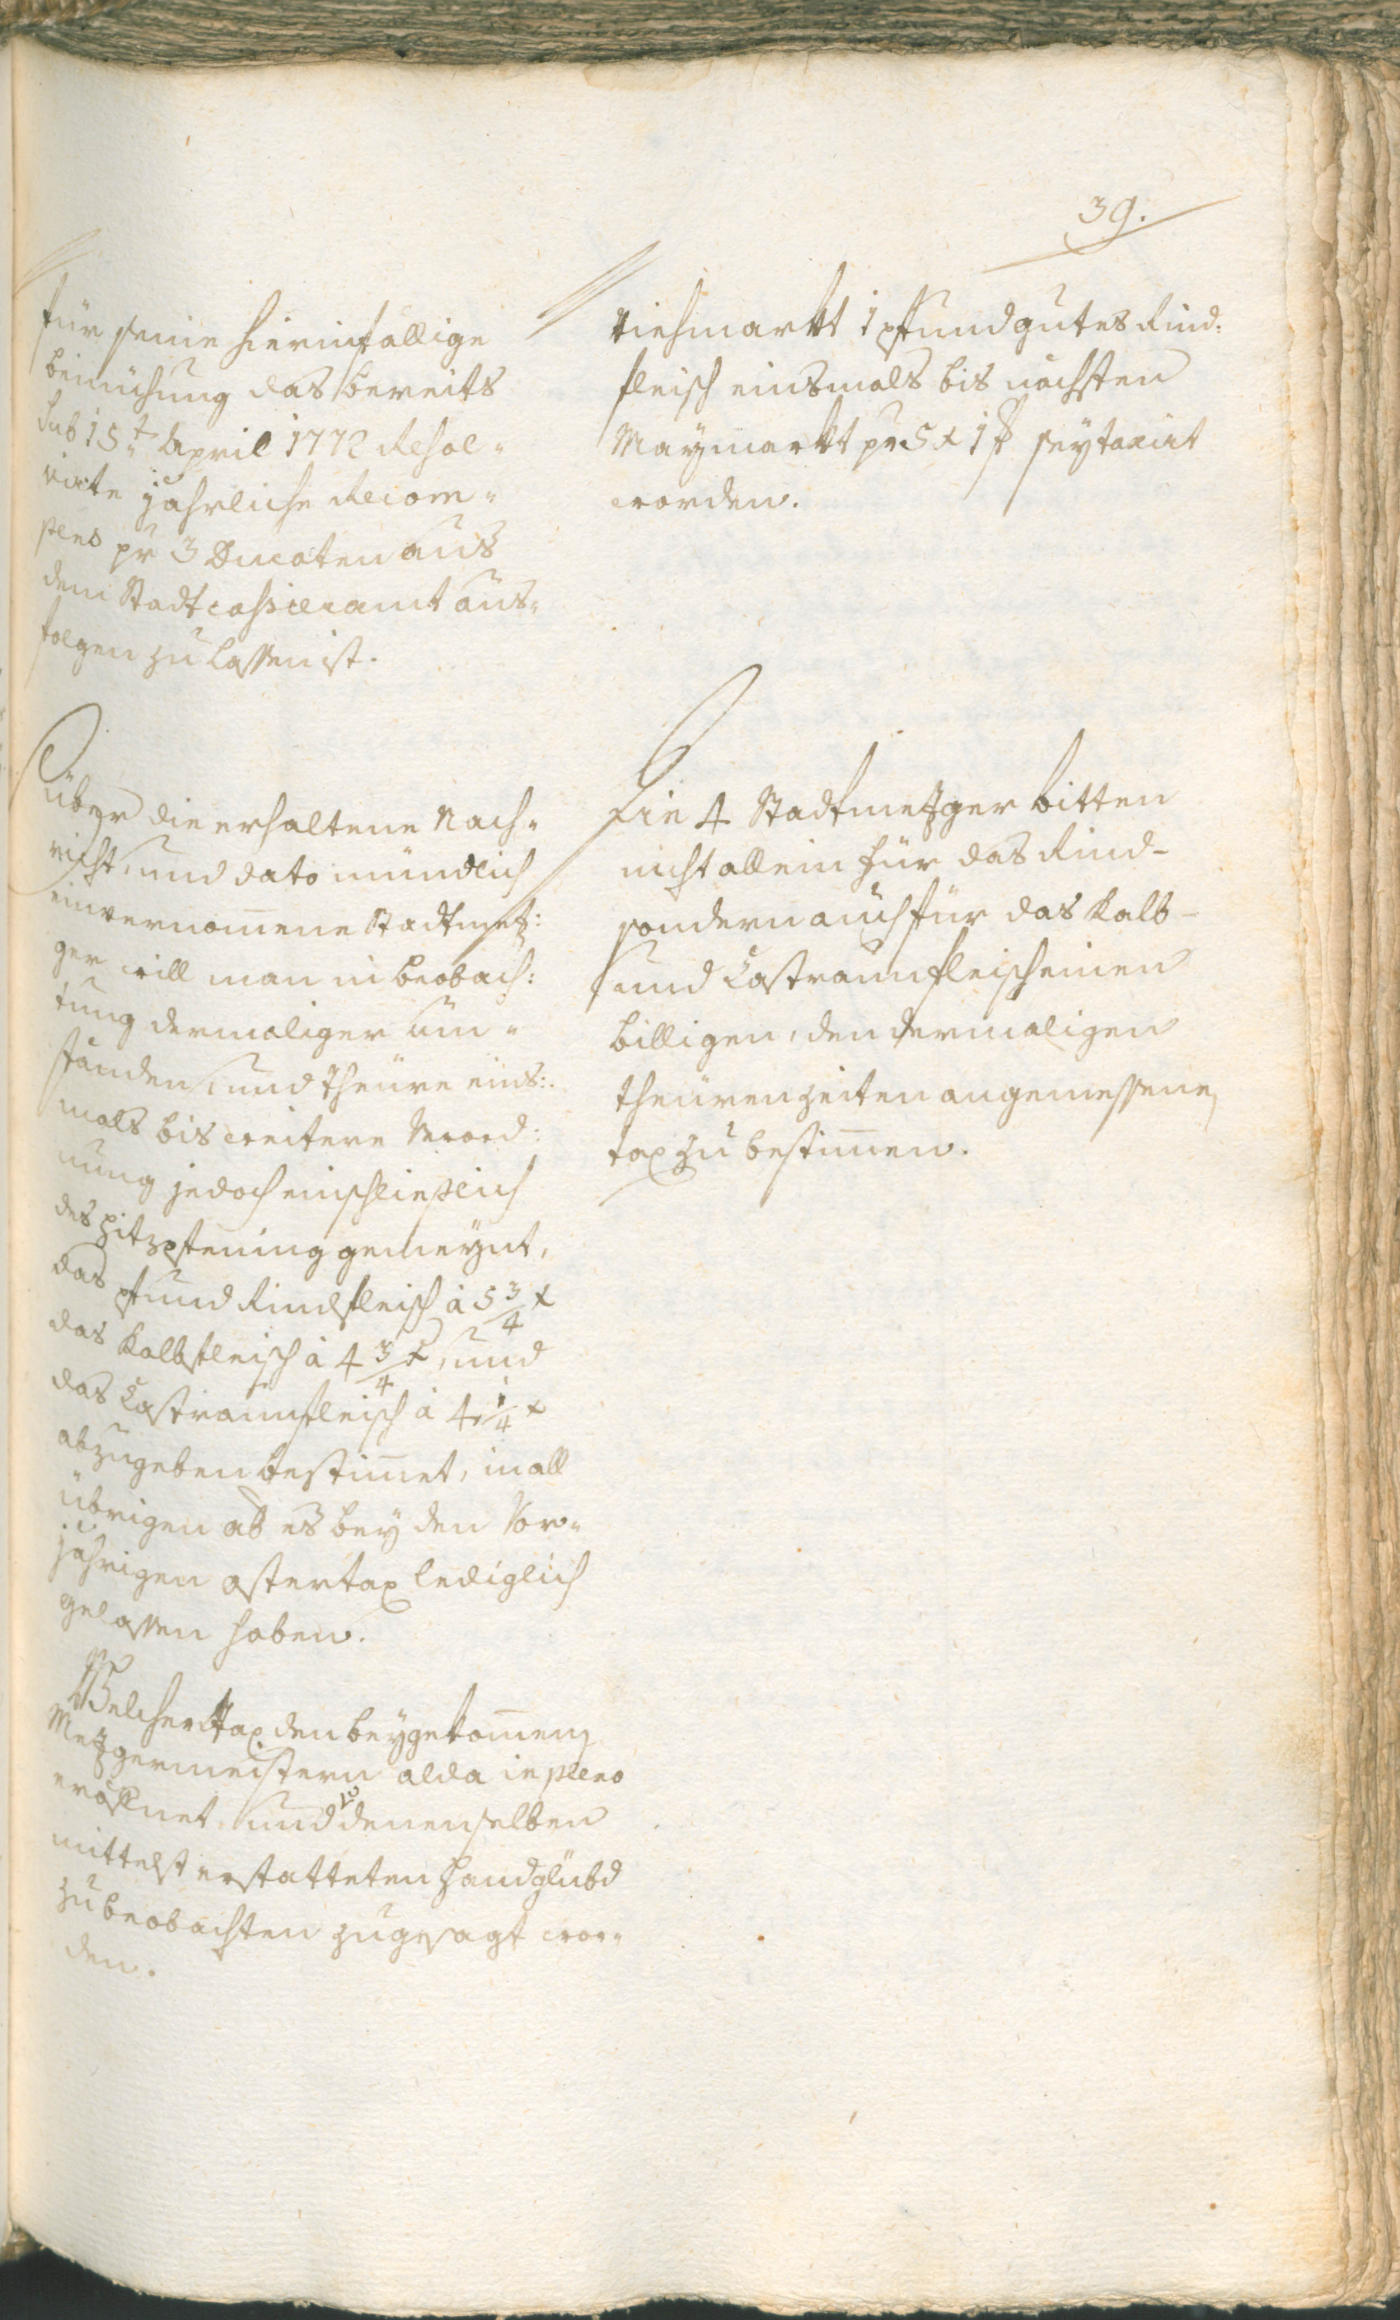 39.
für seine hierinfällige
bemühung das bereits
sub 15t April 1772 Resol„
virte jahrliche Recom„
pens pr 3 Ducaten aus
dem Stadtcassieramt aus„
folgen zu lassen ist.
über die erhaltene Nach„
richt, und dato mündlich
einvernom̄ene Stadtmetz:
ger will man in beobach:
tung dermaliger um„
ständen, und theüre eins:
mals bis weitere Verord:
nung jedoch einschliesslich
des Pitzpfening gemeynt,
das pfund Rindfleisch à 5 3/4 x
das Kalbfleisch à 4 3/4 x, und
das Castraunfleisch à 4 1/4 x
abzugeben bestim̄et, in all
übrigen ab es bey den Vor„
jährigen ostertax lediglich
gelassen haben.
Welcher Tax den beygekom̄enen
Metzgermeistern alda in pleno
eröffnet, und v denenselben
mittelst erstatteten Handglübd
zu beobachten zugesagt wor„
den.
Viehmarkt 1 pfund gutes Rind:
fleisch einsmals bis nächsten
Maymarkt pr 5 x 1 seytaxirt
worden.
Die 4 Stadtmetzger bitten
nicht allein für das Rind-
sondern auch für das Kalb-
und Castraunfleisch einen
billigen, den dermaligen
theüren zeiten angemessenen
tax zu bestim̄en.